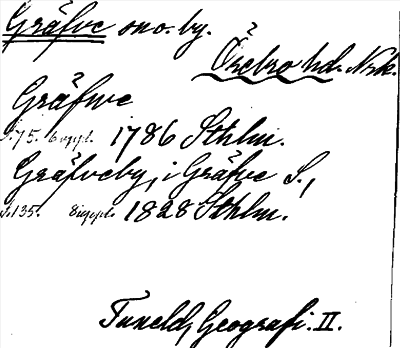 Gräfve sno. by.
Örebro hd. Nrk.
Gräfwe
S. 75. 6 uppl. 1786 Sthlm.
Gräfveby, i Gräfve S.,
S. 135. 8 uppl. 1828 Sthlm.
Tuneld, Geografi. II.